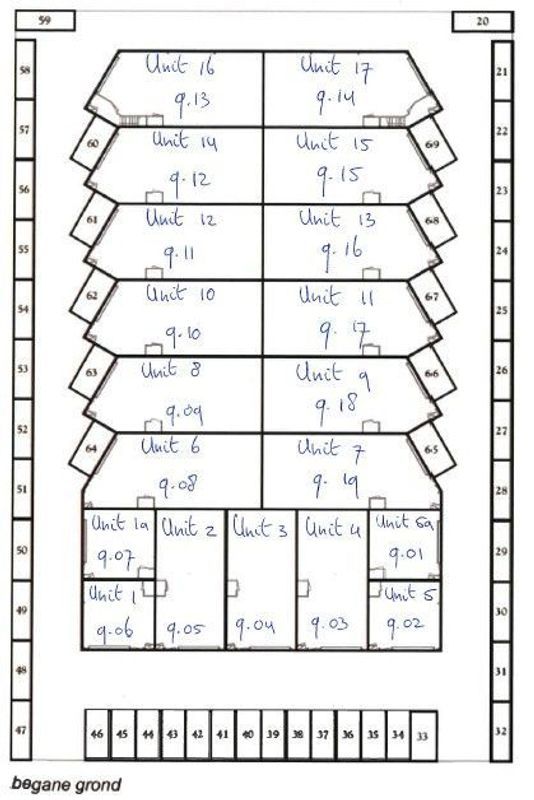 59
20
58
Unit 16
Unit 17
21
9.13
9.14
57
22
60
Unit 14
Unit 15
69
56
9.12
9.15
23
61
Unit 12
Unit 13
68
55
9.11
9.16
24
62
Unit 10
Unit 11
67
54
9.10
9.17
25
63
Unit 8
Unit 9
66
53
26
9.09
9.18
52
27
64
Unit 6
Unit 7
65
51
9.08
9.19
28
Unit 1a
Unit 2
Unit 3
Unit 4
Unit 5a
50
9.07
9.01
29
Unit 1
Unit 5
49
30
9.06
9.05
9.04
9.03
9.02
48
31
47
46 45 44 43 42 41 40 39 38 37 36 35 34 33
32
begane grond